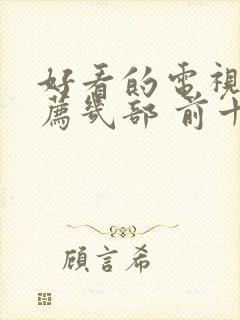 好看的電視
薦幾部 前十
顧言希